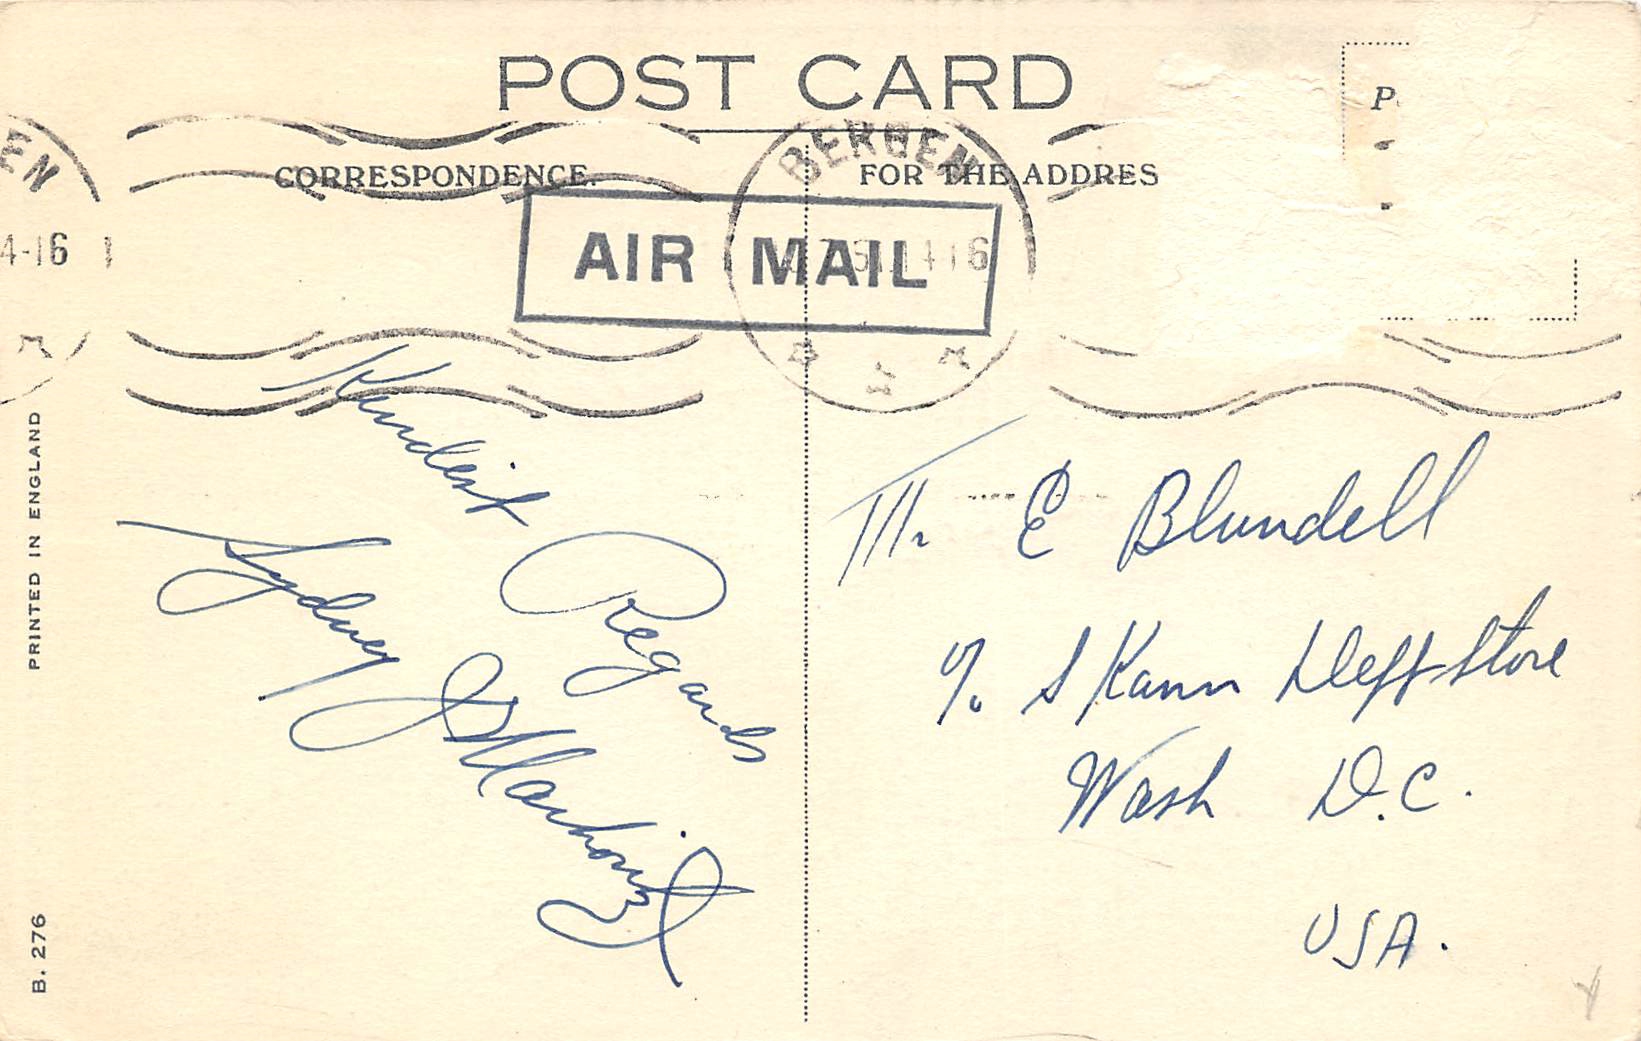 POST CARD
CORRESPONDENCE.
FOR THE ADDRES
P
BERGEN
EN
4-16
AIR MAIL
Kindest
Regards
Sydney
Mr E Blundell
c/o S Kann Dept Store
Wash D.C.
USA.
PRINTED IN ENGLAND
B. 276